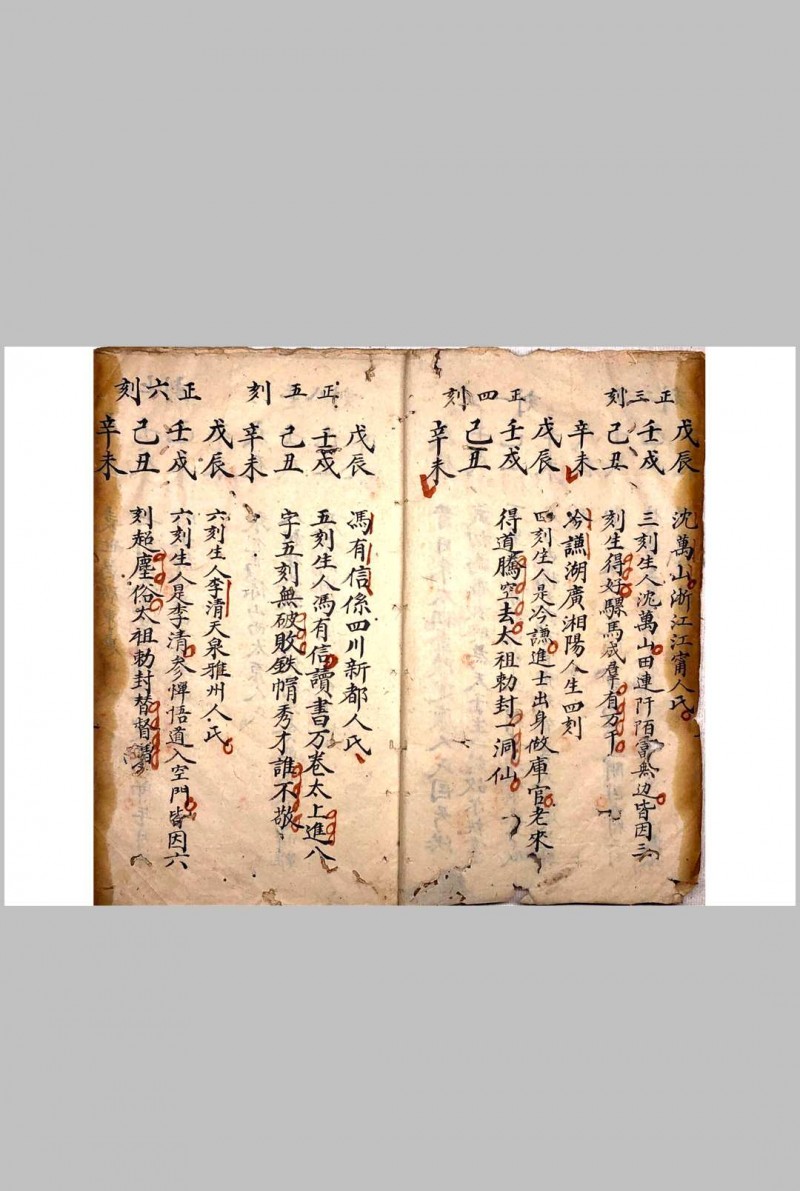 正三刻
戊辰
壬戌
己丑
辛未
沈萬山浙江江甯人氏
三刻生人沈萬山田連阡陌富無边皆因三
刻生得好騾馬成羣有万千
正四刻
戊辰
壬戌
己丑
辛未
冷謙湖廣湘陽人生四刻
四刻生人是冷謙進士出身做庫官老來
得道騰空去太祖勅封一洞仙
正五刻
戊辰
壬戌
己丑
辛未
馮有信係四川新都人氏
五刻生人馮有信讀書万卷太上進八
字五刻無破敗鉄帽秀才誰不敬
正六刻
戊辰
壬戌
己丑
辛未
六刻生人李清天泉雅州人氏
六刻生人是李清参惮悟道入空門皆因六
刻超塵俗太祖勅封替督